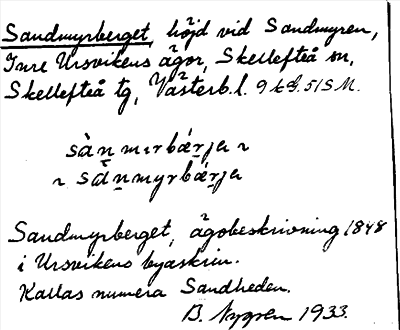 Sandmyrberget, höjd vid Sandmyren,
Inre Ursvikens ägor, Skellefteå sn,
Skellefteå tg, Västerb. l. 9 k d. 51 S M.
sàn̥mırbǽrja ~
~ sán̥myrbǽrja
Sandmyrberget, ägobeskrivning 1848
i Ursvikens byaskrin.
Kallas numera Sandheden.
B. Nygren 1933.